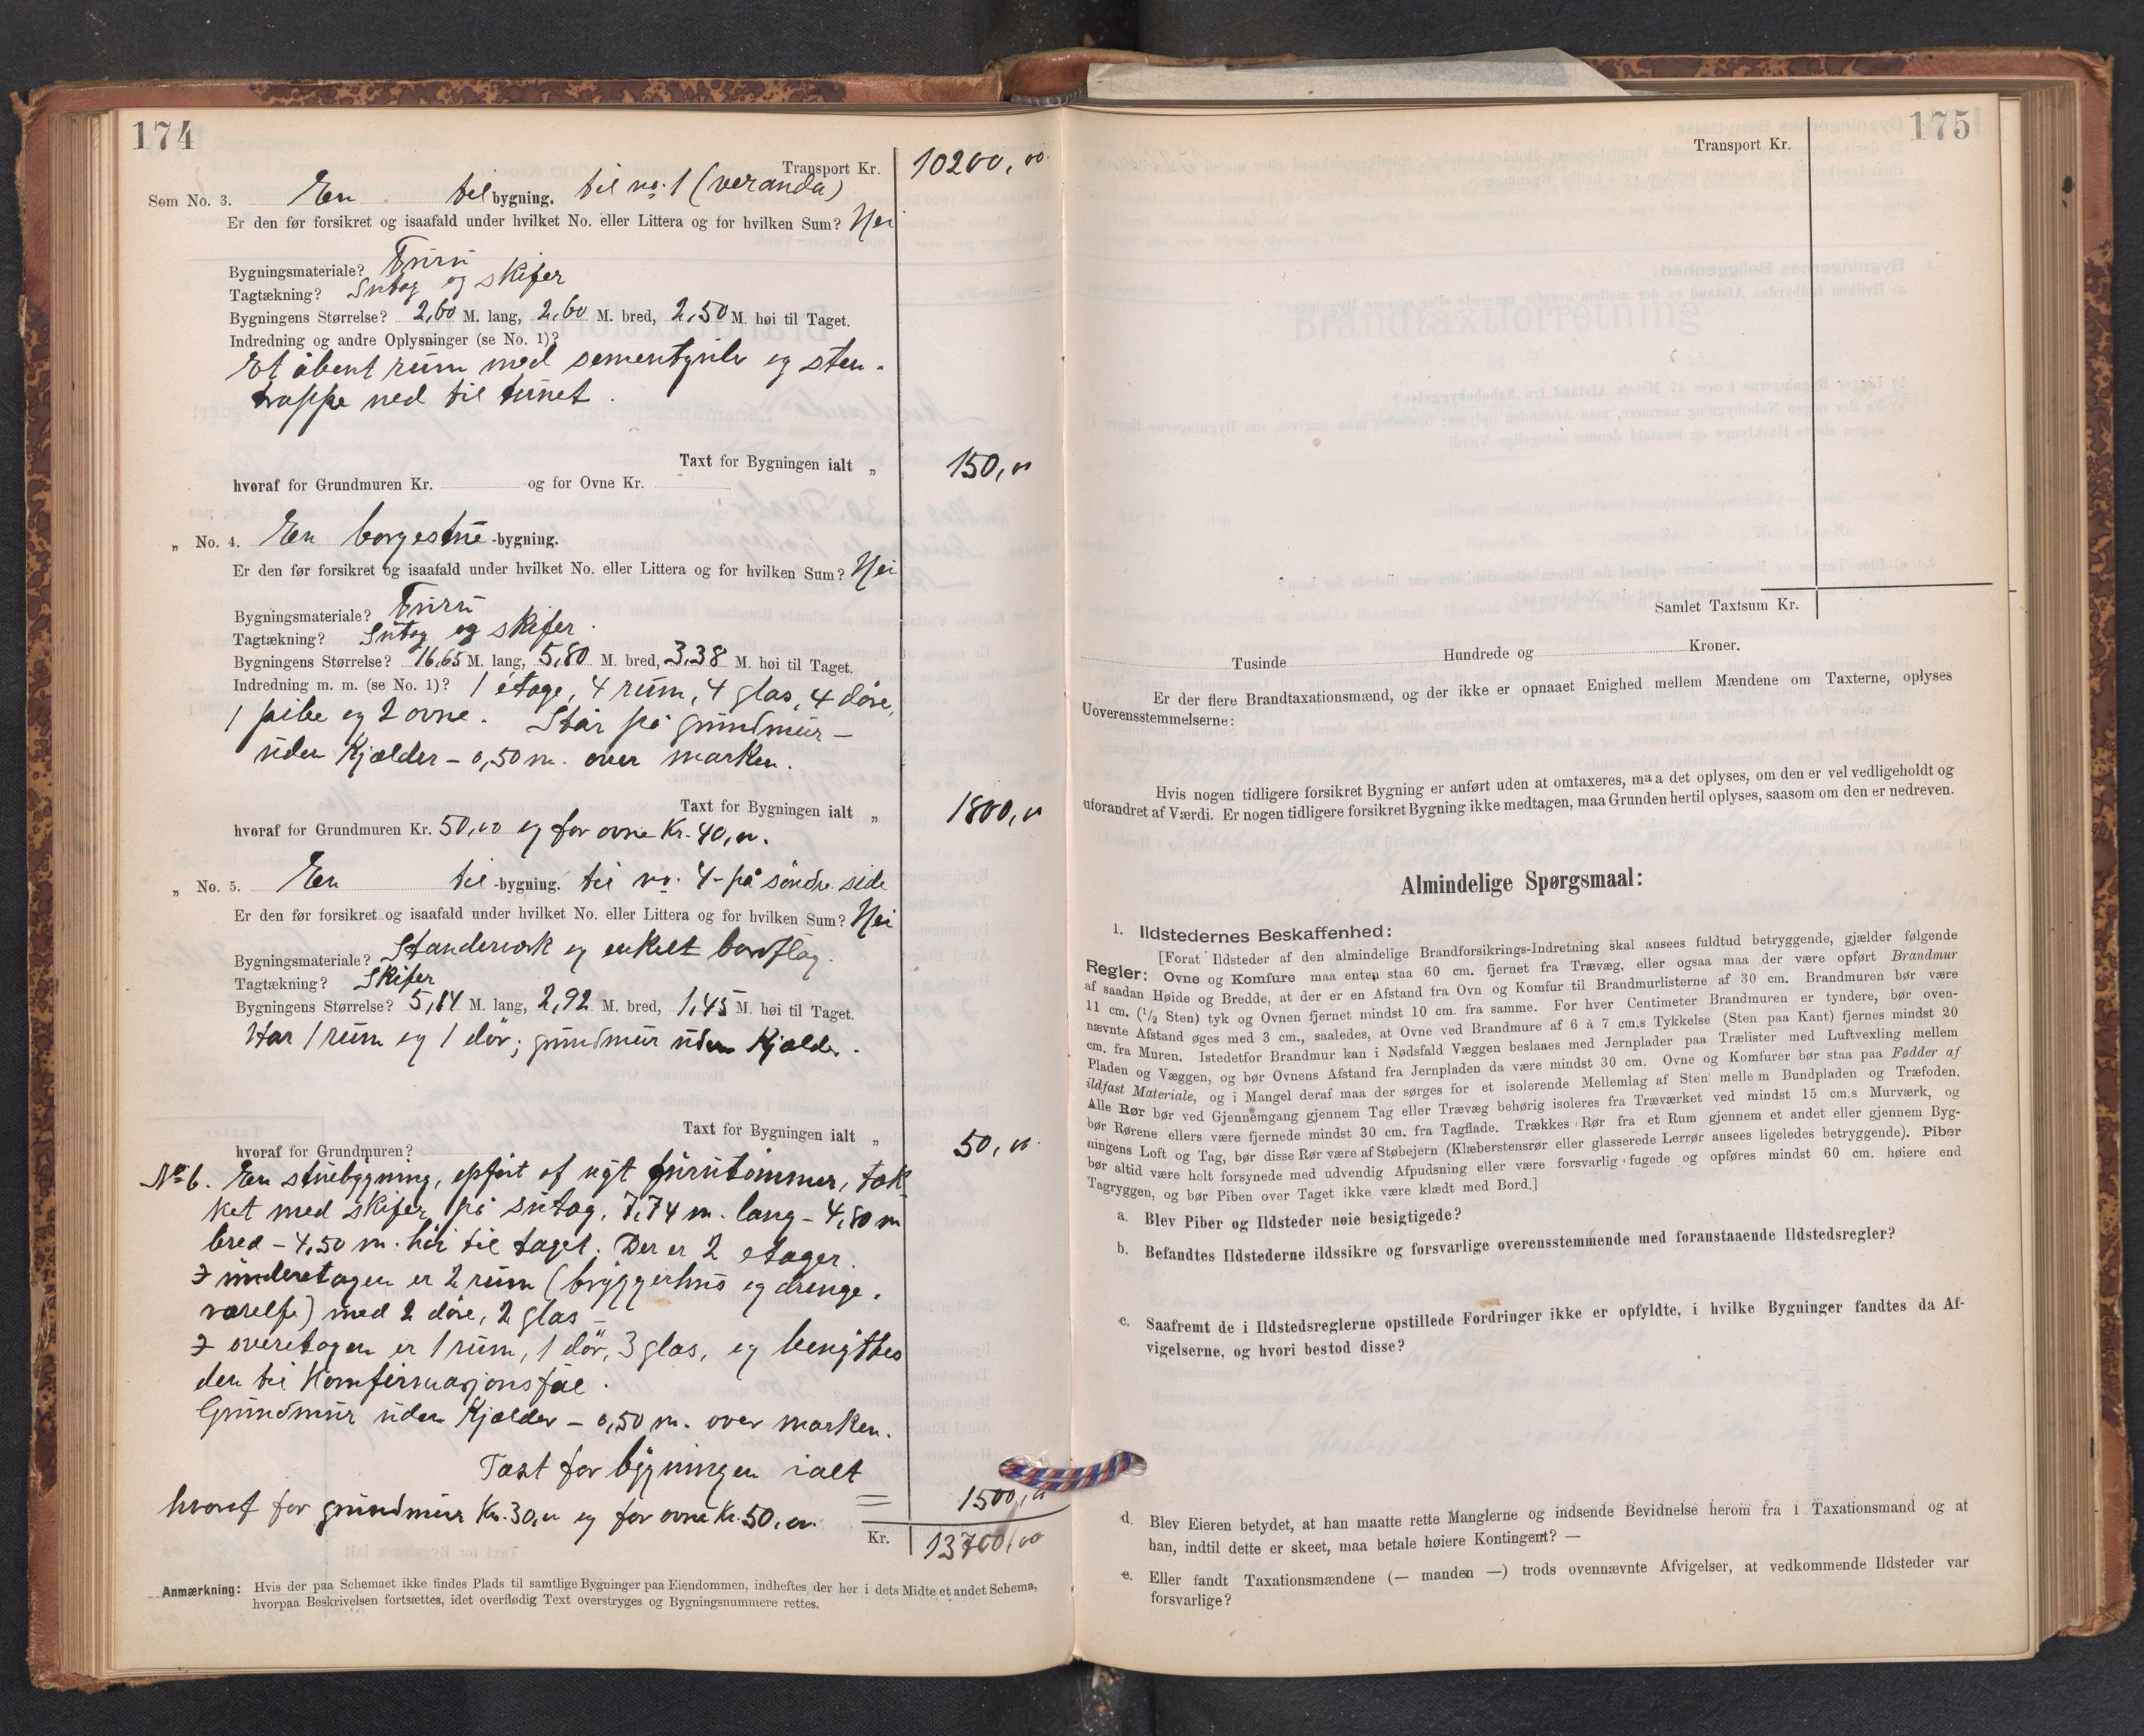 174
Transport Kr. 10200,00
Søm No. 3. En tilbygning. til no. 1 (veranda)
Er den før forsikret og isaafald under hvilket No. eller Littera og for hvilken Sum? Nei
Bygningsmateriale? Furu
Tagtækning? Sutag og skifer
Bygningens Størrelse? 2,60 M. lang, 2,60 M. bred, 2,50 M. høi til Taget.
Indredning og andre Oplysninger (se No. 1)?
Et åbent rum med sementgulv og sten-
trappe ned til tunet.
Taxt for Bygningen ialt „ 150,00
hvoraf for Grundmuren Kr. og for Ovne Kr.
„ No. 4. En borgestue-bygning.
Er den før forsikret og isaafald under hvilket No. eller Littera og for hvilken Sum? Nei
Bygningsmateriale? Furu
Tagtækning? Sutag og skifer.
Bygningens Størrelse? 16,65 M. lang, 5,80 M. bred, 3,38 M. høi til Taget.
Indredning m. m. (se No. 1)? 1 etage, 4 rum, 4 glas, 4 døre,
1 pibe og 2 ovne. Står på grundmur –
uden kjælder – 0,50 m. over marken.
Taxt for Bygningen ialt „ 1800,00
hvoraf for Grundmuren Kr. 50,00 og for ovne Kr. 40,00.
„ No. 5. En til-bygning. til no. 4 - på søndre side
Er den før forsikret og isaafald under hvilket No. eller Littera og for hvilken Sum? Nei
Bygningsmateriale? Standerverk og enkelt bordflag.
Tagtækning? Skifer
Bygningens Størrelse? 5,84 M. lang, 2,92 M. bred, 1,45 M. høi til Taget.
Har 1 rum og 1 dør; grundmur uden kjælder.
Taxt for Bygningen ialt „ 50,00
hvoraf for Grundmuren?
No 6. En stuebygning, opført af nyt furutømmer, tæk-
ket med skifer på sutag, 7,74 m. lang – 4,80 m
bred – 4,50 m. høi til taget. Der er 2 etager.
I underetagen er 2 rum (bryggerhus og drenge-
værelse) med 2 døre, 2 glas –
I overetagen er 1 rum, 1 dør, 3 glas, og benyttes
den til Konfirmasjonssal.
Grundmur uden kjælder – 0,50 m. over marken.
Taxt for bygningen ialt
1500,00
hvoraf for grundmur Kr. 30,00 og for ovne Kr. 50,00
Kr. 13700,00
Anmærkning: Hvis der paa Schemaet ikke findes Plads til samtlige Bygninger paa Eiendommen, indheftes der her i dets Midte et andet Schema,
hvorpaa Beskrivelsen fortsættes, idet overflødig Text overstryges og Bygningsnummere rettes.
175
Transport Kr.
Samlet Taxtsum Kr.
Tusinde Hundrede og Kroner.
Er der flere Brandtaxationsmænd, og der ikke er opnaaet Enighed mellem Mændene om Taxterne, oplyses
Uoverensstemmelserne:
Hvis nogen tidligere forsikret Bygning er anført uden at omtaxeres, maa det oplyses, om den er vel vedligeholdt og
uforandret af Værdi. Er nogen tidligere forsikret Bygning ikke medtagen, maa Grunden hertil oplyses, saasom om den er nedreven.
Almindelige Spørgsmaal:
1. Ildstedernes Beskaffenhed:
[Forat Ildsteder af den almindelige Brandforsikrings-Indretning skal ansees fuldtud betryggende, gjælder følgende
Regler: Ovne og Komfure maa enten staa 60 cm. fjernet fra Trævæg, eller ogsaa maa der være opført Brandmur
af saadan Høide og Bredde, at der er en Afstand fra Ovn og Komfur til Brandmurlisterne af 30 cm. Brandmuren bør være
11 cm. (1/2 Sten) tyk og Ovnen fjernet mindst 10 cm. fra samme. For hver Centimeter Brandmuren er tyndere, bør oven-
nævnte Afstand øges med 3 cm., saaledes, at Ovne ved Brandmure af 6 à 7 cm.s Tykkelse (Sten paa Kant) fjernes mindst 20
cm. fra Muren. Istedetfor Brandmur kan i Nødsfald Væggen beslaaes med Jernplader paa Trælister med Luftvexling mellem
Pladen og Væggen, og bør Ovnens Afstand fra Jernpladen da være mindst 30 cm. Ovne og Komfurer bør staa paa Fødder af
ildfast Materiale, og i Mangel deraf maa der sørges for et isolerende Mellemlag af Sten mellem Bundpladen og Træfoden.
Alle Rør bør ved Gjennemgang gjennem Tag eller Trævæg behørig isoleres fra Træværket ved mindst 15 cm.s Murværk, og
bør Rørene ellers være fjernede mindst 30 cm. fra Tagflade. Trækkes Rør fra et Rum gjennem et andet eller gjennem Byg-
ningens Loft og Tag, bør disse Rør være af Støbejern (Klæberstensrør eller glasserede Lerrør ansees ligeledes betryggende). Piber
bør altid være helt forsynede med udvendig Afpudsning eller være forsvarlig fugede og opføres mindst 60 cm. høiere end
Tagryggen, og bør Piben over Taget ikke være klædt med Bord.]
a. Blev Piber og Ildsteder nøie besigtigede?
b. Befandtes Ildstederne ildssikre og forsvarlige overensstemmende med foranstaaende Ildstedsregler?
c. Saafremt de i Ildstedsreglerne opstillede Fordringer ikke er opfyldte, i hvilke Bygninger fandtes da Af-
vigelserne, og hvori bestod disse?
d. Blev Eieren betydet, at han maatte rette Manglerne og indsende Bevidnelse herom fra 1 Taxationsmand og at
han, indtil dette er skeet, maa betale høiere Kontingent? —
e. Eller fandt Taxationsmændene (— manden —) trods ovennævnte Afvigelser, at vedkommende Ildsteder var
forsvarlige?